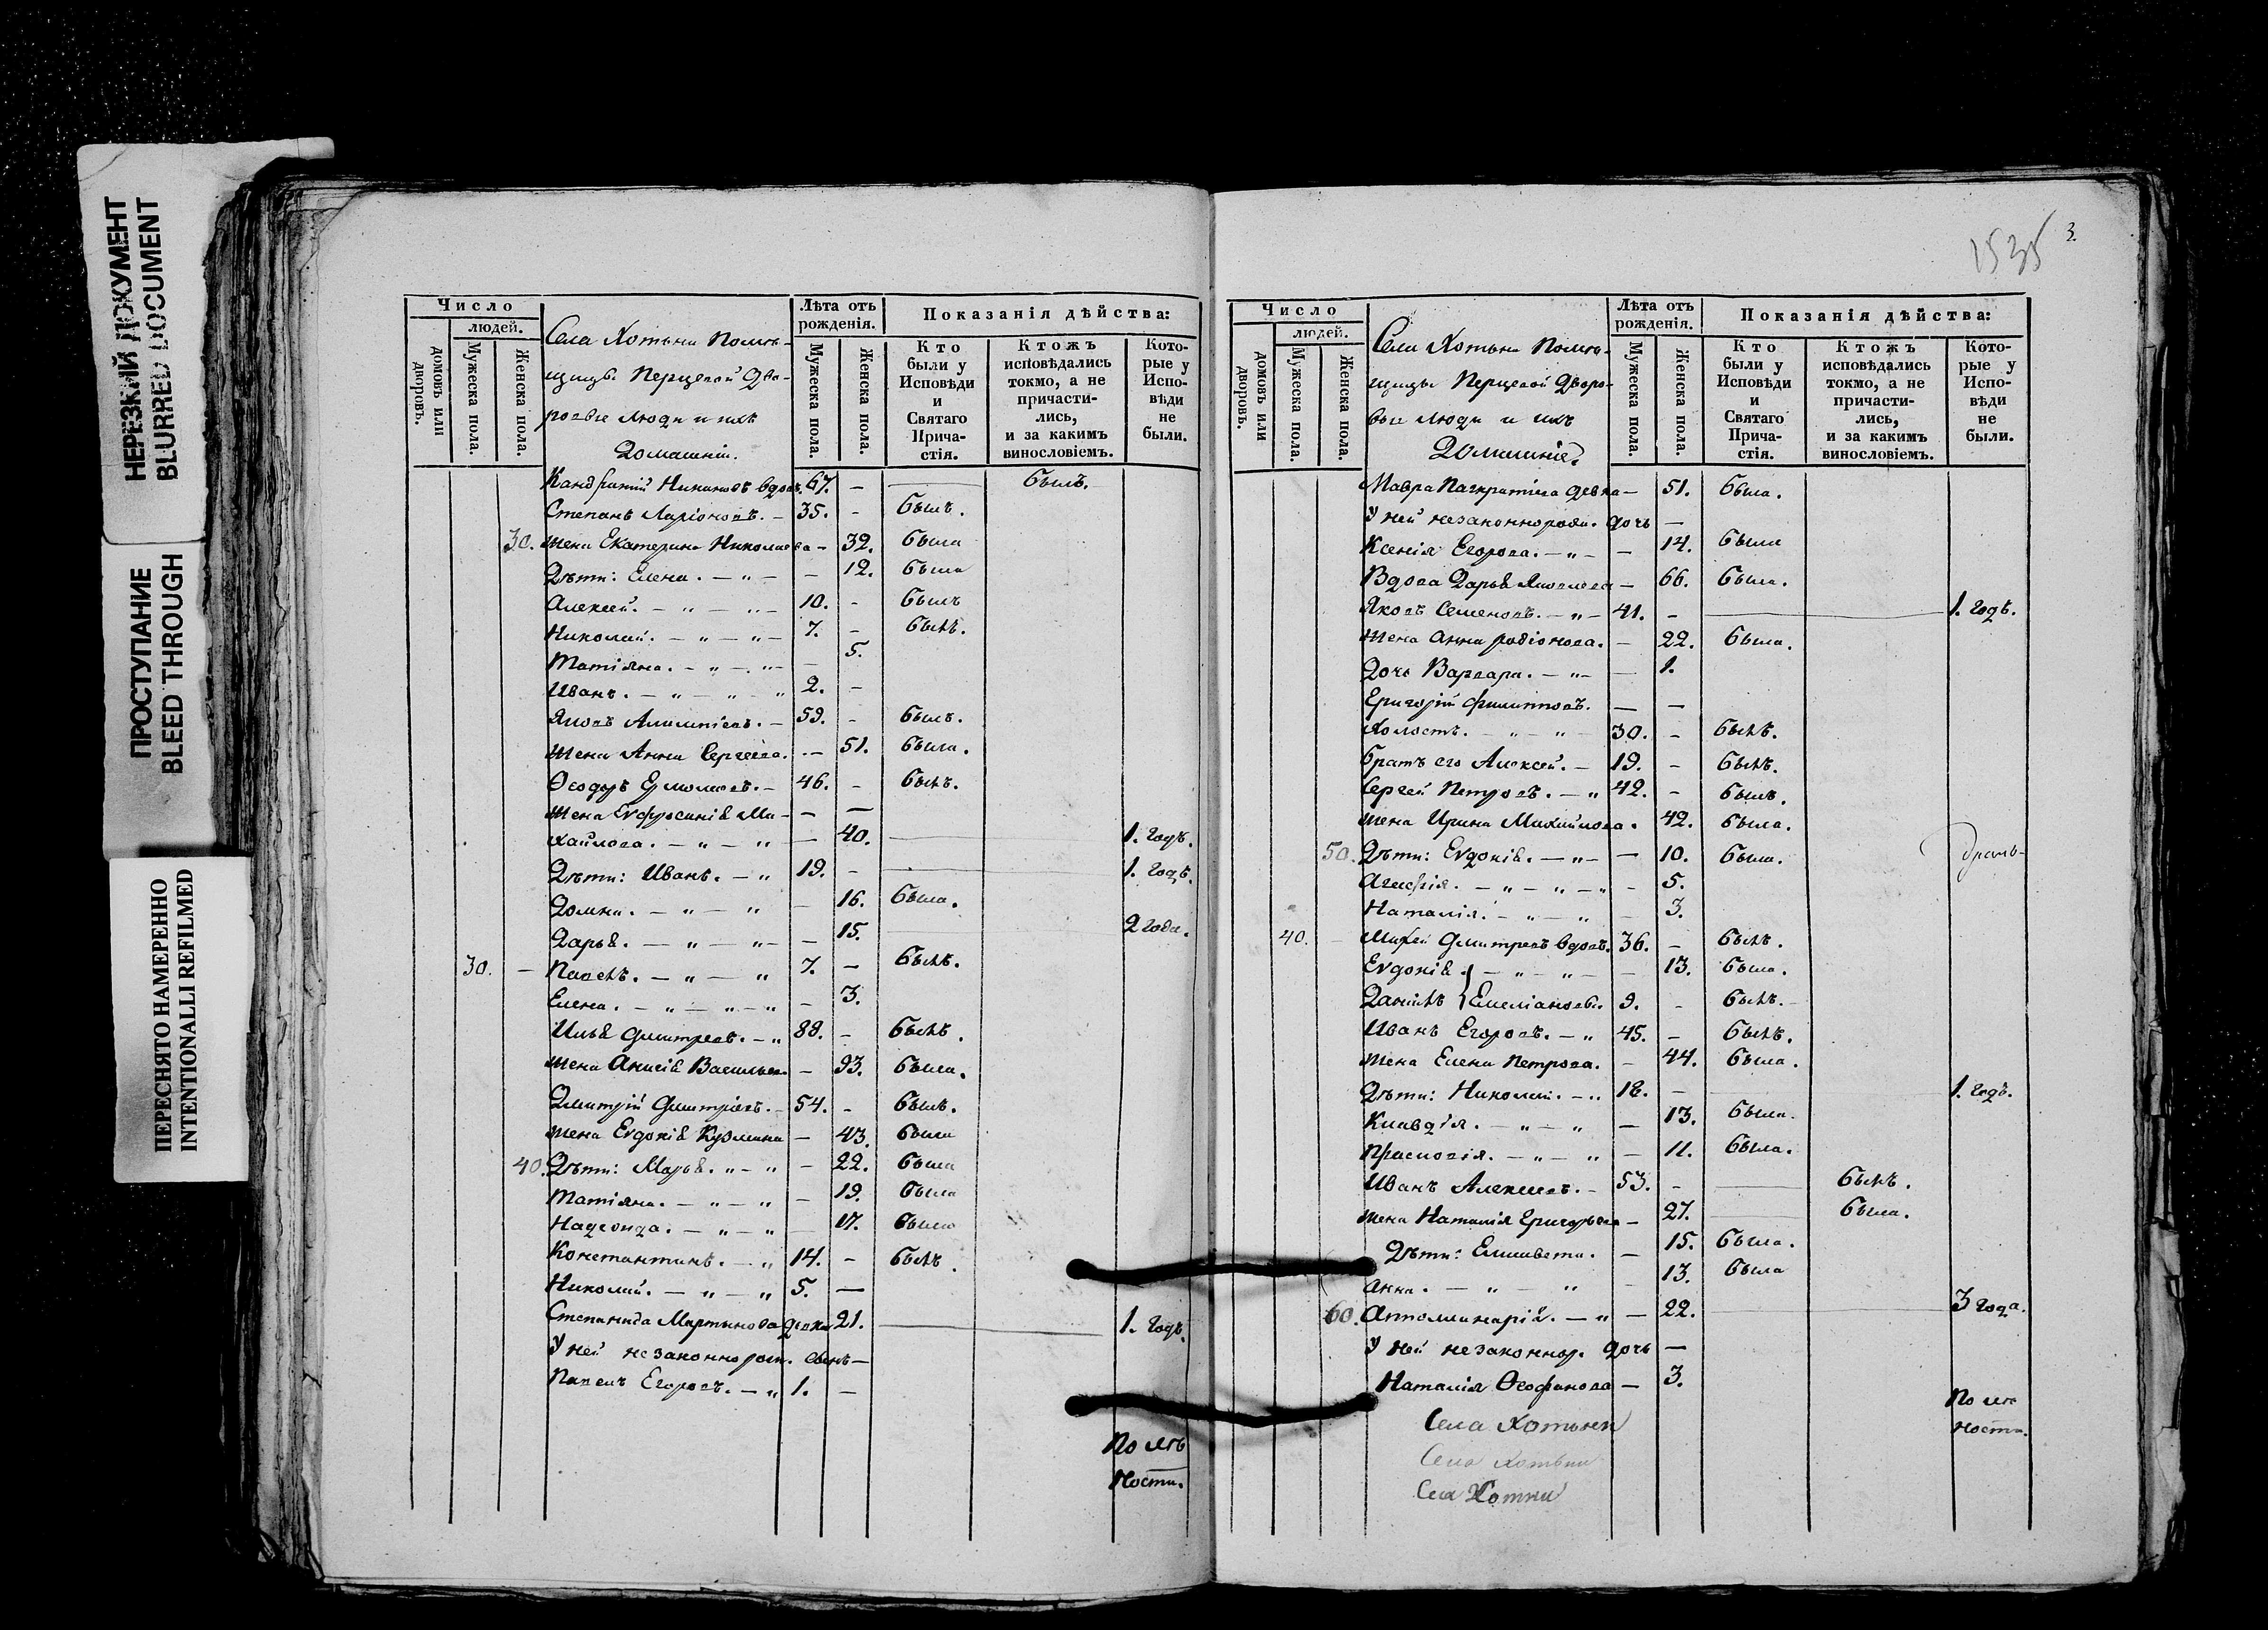 НЕРЕЗКИЙ ДОКУМЕНТ
BLURRED DOCUMENT
ПРОСТУПАНИЕ
BLEED THROUGH
ПЕРЕСНЯТО НАМЕРЕННО
INTENTIONALLI REFILMED
Число
людей.
домовъ или дворовъ.
Мужеска пола.
Женска пола.
Села Хотыни Помѣ-
щицы Перцевой Дво-
ровые люди и ихъ
Домашніи.
Лѣта отъ рожденія.
Мужеска пола.
Женска пола.
Показанія дѣйства:
Кто были у Исповѣди и Святаго Прича-стія.
Ктожъ исповѣдались токмо, а не причасти-лись, и за какимъ винословіемъ.
Кото-рые у Испо-вѣди не были.
Никановъ вдовъ. 67. - былъ.
Степанъ Ларіоновъ. - 35. - былъ.
30. Жена Екатерина Николаева - 32. была
Дѣти: Елена. - " - - 12. была
Алексѣй. - " - " - 10. - былъ
Николай. - " - " - 7. - былъ.
Татіяна. - " - " - - 5.
Иванъ. - " - " - " 2. -
Яковъ - 59. - былъ.
Жена Анна Сергѣева. - 51. была.
Ѳеодоръ Ермолаевъ. - 46. - былъ.
Жена Евфросинія Ми- - -
хайлова. - " - " - 40. 1. годъ.
Дѣти: Иванъ. - " 19. - 1. годъ.
Домна. - " - " - 16. была.
Дарья. - " - " - - 15. 2 года.
30. - Павелъ. - " - " 7. - былъ.
Елена. - " - " - " - 3.
Илья Дмитревъ. - " 88. - былъ.
Жена Анисія Васильева - 93. была.
Дмитрій Дмитріевъ. - 54. - былъ.
Жена Евдокія Кузмина - 43. была
40. Дѣти: Марья. " - " - 22. была
Татіяна. - " - " - 19. была
Надежда. - " - " - 17. была
Константинъ. - " 14. - былъ.
Николай. - " - " 5. -
Степанида Мартынова дѣвка 21. 1. годъ.
У ней незаконнорож. сынъ -
Павелъ Егоровъ. - " 1. -
По мѣ
ности.
1535 3.
Число
людей.
домовъ или дворовъ.
Мужеска пола.
Женска пола.
Села Хотыни Помѣ-
щицы Перцевой Дворо-
вые люди и ихъ
Домашніе.
Лѣта отъ рожденія.
Мужеска пола.
Женска пола.
Показанія дѣйства:
Кто были у Исповѣди и Святаго Прича-стія.
Ктожъ исповѣдались токмо, а не причасти-лись, и за какимъ винословіемъ.
Кото-рые у Испо-вѣди не были.
Мавра Панкратіева дѣвка - 51. была.
У ней незаконнорожд. дочь -
Ксенія Егорова. - " - - 14. была
Вдова Дарья - 66. была.
Яковъ Семеновъ. - " - 41. - 1. годъ.
Жена Анна Родіонова. - 22. была.
Дочь Варвара. - " - - 1.
Григорій Филипповъ. - -
Холостъ. - " - " - 30. - былъ.
Братъ его Алексѣй. - 19. - былъ.
Сергей Петровъ. - " 42. - былъ.
Жена Ирина Михайлова. 42. была.
50. Дѣти: Евдокія. - " - - 10. была.
Агафія. - " - " - " - 5.
Наталія. - " - " - 3.
40. - Дмитревъ вдовъ. 36. - былъ.
Евдокія. - " - " - - 13. была.
Даніилъ Емеліановы. 9. - былъ.
Иванъ Егоровъ. - " 45. - былъ.
Жена Елена Петрова. - 44. была.
Дѣти: Николай. - " 18. - 1. годъ.
Клавдія. - " - " - 13. была.
Прасковія. - " - " - 11. была.
Иванъ Алексеевъ. - 53. - былъ.
Жена Наталія Григорьева - 27. была.
Дѣти: Елисавета. - 15. была.
Анна. - " - " - 13. была
60. Аполлинарія. - " - 22. 3 года.
У ней незаконнор. дочь -
Наталія Ѳеофанова - 3.
По мѣ
ности.
Села Хотыни
Села Хотыни
Села Хотни